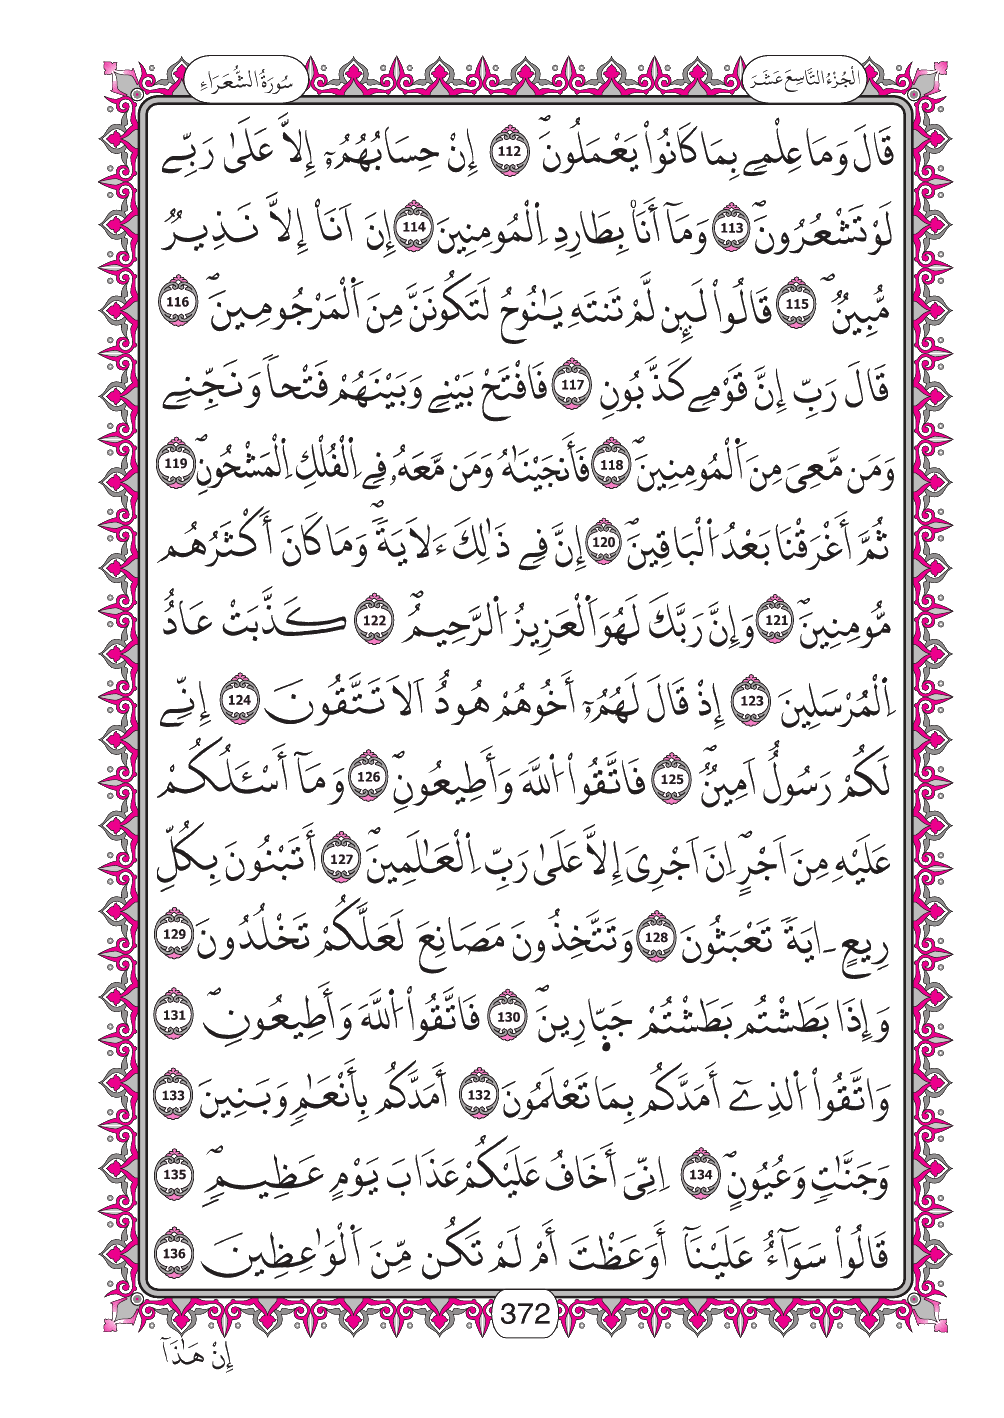 الْجُزْءُ التَّاسِعَ عَشَرَ
سُورَةُ الشُّعَرَاءِ
قَالَ وَمَا عِلْمِے بِمَا كَانُواْ يَعْمَلُونَۖ 112 إِنْ حِسَابُهُمُۥٓ إِلاَّ عَلَىٰ رَبِّے
لَوْ تَشْعُرُونَۖ 113 وَمَآ أَنَا۠ بِطَارِدِ اِ۬لْمُومِنِينَ 114 إِنَ اَنَا۠ إِلاَّ نَذِيرٌ
مُّبِينٌۖ 115 قَالُواْ لَئِن لَّمْ تَنتَهِ يَٰنُوحُ لَتَكُونَنَّ مِنَ اَ۬لْمَرْجُومِينَۖ 116
قَالَ رَبِّ إِنَّ قَوْمِے كَذَّبُونِ 117 فَافْتَحْ بَيْنِے وَبَيْنَهُمْ فَتْحاٗ وَنَجِّنِے
وَمَن مَّعِيَ مِنَ اَ۬لْمُومِنِينَۖ 118 فَأَنجَيْنَٰهُ وَمَن مَّعَهُۥ فِے اِ۬لْفُلْكِ اِ۬لْمَشْحُونِۖ 119
ثُمَّ أَغْرَقْنَا بَعْدُ اُ۬لْبَاقِينَۖ 120 إِنَّ فِے ذَٰلِكَ ءَلَايَةٗۖ وَمَا كَانَ أَكْثَرُهُم
مُّومِنِينَۖ 121 وَإِنَّ رَبَّكَ لَهُوَ اَ۬لْعَزِيزُ اُ۬لرَّحِيمُۖ 122 كَذَّبَتْ عَادٌ
اِ۬لْمُرْسَلِينَ 123 إِذْ قَالَ لَهُمُۥٓ أَخُوهُمْ هُودٌ اَلَا تَتَّقُونَ 124 إِنِّے
لَكُمْ رَسُولٌ اَمِينٌۖ 125 فَاتَّقُواْ اُ۬للَّهَ وَأَطِيعُونِۖ 126 وَمَآ أَسْـَٔلُكُمْ
عَلَيْهِ مِنَ اَجْرٍۖ اِنَ اَجْرِيَ إِلاَّ عَلَىٰ رَبِّ اِ۬لْعَٰلَمِينَۖ 127 أَتَبْنُونَ بِكُلِّ
رِيعٍ ـ ايَةٗ تَعْبَثُونَ 128 وَتَتَّخِذُونَ مَصَانِعَ لَعَلَّكُمْ تَخْلُدُونَ 129
وَإِذَا بَطَشْتُم بَطَشْتُمْ جَبّ۪ارِينَۖ 130 فَاتَّقُواْ اُ۬للَّهَ وَأَطِيعُونِۖ 131
وَاتَّقُواْ اُ۬لذِےٓ أَمَدَّكُم بِمَا تَعْلَمُونَ 132 أَمَدَّكُم بِأَنْعَٰمٖ وَبَنِينَ 133
وَجَنَّٰتٖ وَعُيُونٍۖ 134 اِنِّيَ أَخَافُ عَلَيْكُمْ عَذَابَ يَوْمٍ عَظِيمٖۖ 135
قَالُواْ سَوَآءٌ عَلَيْنَآ أَوَعَظْتَ أَمْ لَمْ تَكُن مِّنَ اَ۬لْوَٰعِظِينَ 136
372
إِنْ هَٰذَآ